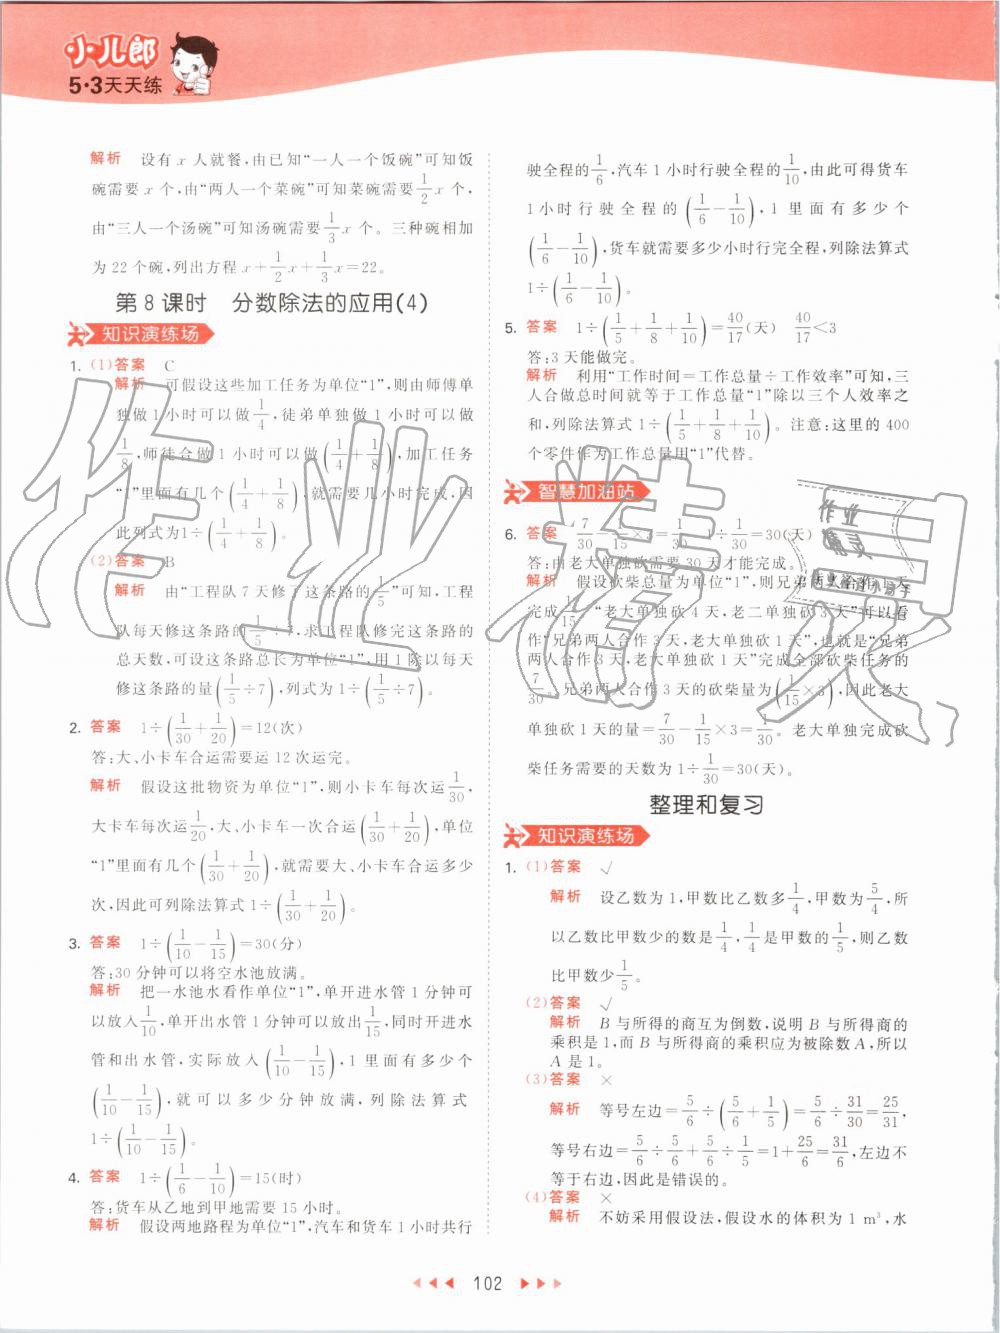 小儿郎
5·3天天练
解析 设有 x 人就餐,由已知“一人一个饭碗”可知饭
碗需要 x 个,由“两人一个菜碗”可知菜碗需要 1/2 x 个,
由“三人一个汤碗”可知汤碗需要 1/3 x 个。三种碗相加
为 22 个碗,列出方程 x+1/2 x+1/3 x=22。
第 8 课时 分数除法的应用(4)
知识演练场
1. (1)答案 C
解析 可假设这些加工任务为单位“1”,则由师傅单
独做 1 小时可以做 1/4,徒弟单独做 1 小时可以做
1/8,师徒合做 1 小时可以做(1/4+1/8),加工任务
“1”里面有几个(1/4+1/8),就需要几小时完成,因
此列式为1÷(1/4+1/8)。
(2)答案 B
解析 由“工程队 7 天修了这条路的 1/5”可知,工程
队每天修这条路的 1/5÷7,求工程队修完这条路的
总天数,可设这条路总长为单位“1”,用 1 除以每天
修这条路的量(1/5÷7),列式为 1÷(1/5÷7)。
2. 答案 1÷(1/30+1/20)=12(次)
答:大、小卡车合运需要运 12 次运完。
解析 假设这批物资为单位“1”,则小卡车每次运 1/30,
大卡车每次运 1/20,大、小卡车一次合运(1/30+1/20),单位
“1”里面有几个(1/30+1/20),就需要大、小卡车合运多少
次,因此可列除法算式 1÷(1/30+1/20)。
3. 答案 1÷(1/10−1/15)=30(分)
答:30 分钟可以将空水池放满。
解析 把一水池水看作单位“1”,单开进水管 1 分钟可
以放入 1/10,单开出水管 1 分钟可以放出 1/15,同时开进水
管和出水管,实际放入(1/10−1/15),1 里面有多少个
(1/10−1/15),就可以多少分钟放满,列除法算式
1÷(1/10−1/15)。
4. 答案 1÷(1/6−1/10)=15(时)
答:货车从乙地到甲地需要 15 小时。
解析 假设两地路程为单位“1”,汽车和货车 1 小时共行
驶全程的 1/6,汽车 1 小时行驶全程的 1/10,由此可得货车
1小时行驶全程的(1/6−1/10),1 里面有多少个
(1/6−1/10),货车就需要多少小时行完全程,列除法算式
1÷(1/6−1/10)。
5. 答案 1÷(1/5+1/8+1/10)=40/17(天) 40/17<3
答:3 天能做完。
解析 利用“工作时间=工作总量÷工作效率”可知,三
人合做总时间就等于工作总量“1”除以三个人效率之
和,列除法算式 1÷(1/5+1/8+1/10)。注意:这里的 400
个零件作为工作总量用“1”代替。
智慧加油站
6. 答案 7/30−1/15×3=1/30 1÷1/30=30(天)
答:由老大单独砍需要 30 天才能完成。
解析 假设砍柴总量为单位“1”,则兄弟两人合作 1 天
完成 1/15,“老大单独砍 4 天,老二单独砍 3 天”可以看
作“兄弟两人合作 3 天,老大单独砍 1 天”,也就是“兄弟
两人合作 3 天,老大单独砍 1 天”完成全部砍柴任务的
7/30。兄弟两人合作 3 天的砍柴量为(1/15×3),因此老大
单独砍 1 天的量=7/30−1/15×3=1/30。老大单独完成砍
柴任务需要的天数为 1÷1/30=30(天)。
整理和复习
知识演练场
1. (1)答案 √
解析 设乙数为 1,甲数比乙数多 1/4,甲数为 5/4,所
以乙数比甲数少的数是 1/4,1/4 是甲数的 1/5,则乙数
比甲数少 1/5。
(2)答案 √
解析 B 与所得的商互为倒数,说明 B 与所得商的
乘积是 1,而 B 与所得商的乘积应为被除数 A,所以
A 是 1。
(3)答案 ×
解析 等号左边=5/6÷(5/6+1/5)=5/6÷31/30=25/31,
等号右边=5/6÷5/6+5/6÷1/5=1+25/6=31/6,左边不
等于右边,因此是错误的。
(4)答案 ×
解析 不妨采用假设法,假设水的体积为 1 m³,水
102
作业精灵
作业
精灵